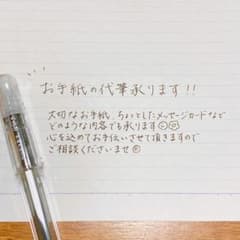 お手紙の代筆承ります!!
大切なお手紙、ちょっとしたメッセージカードなど
どのような内容でも承ります
心を込めてお手伝いさせて頂きますので
ご相談くださいませ